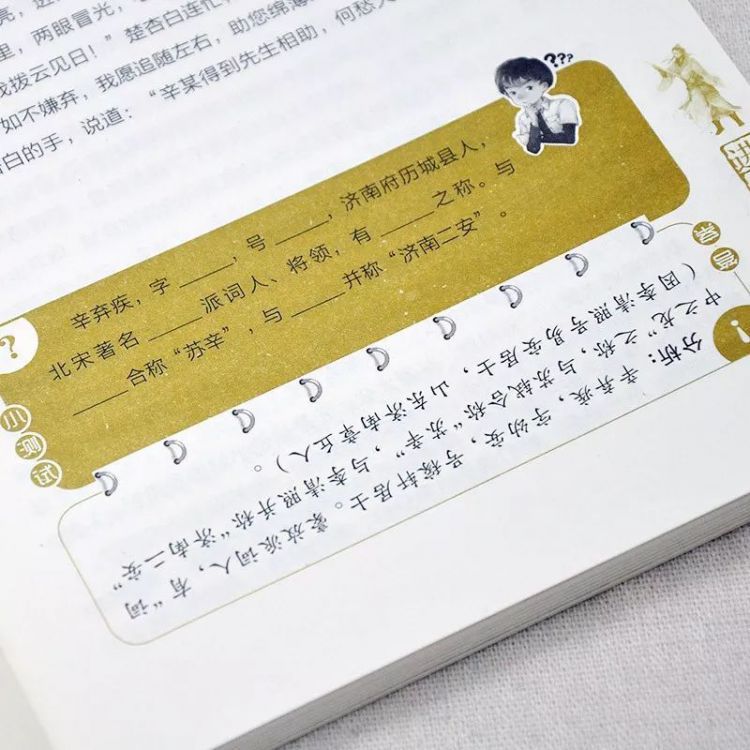 亮，
里，两眼冒光，
拨云见日！”楚杏白连忙
如不嫌弃，我愿追随左右，助您绵薄
白的手，说道：“辛某得到先生相助，何愁
???
辛弃疾，字____，号____，济南府历城县人，
北宋著名____派词人、将领，有____之称。与
____合称“苏辛”，与____并称“济南二安”。
?
小测试
!
答案
分析：辛弃疾，字幼安，号稼轩居士。豪放派词人，有“词
中之龙”之称，与苏轼合称“苏辛”，与李清照并称“济南二安”
（因李清照号易安居士，山东济南章丘人）。